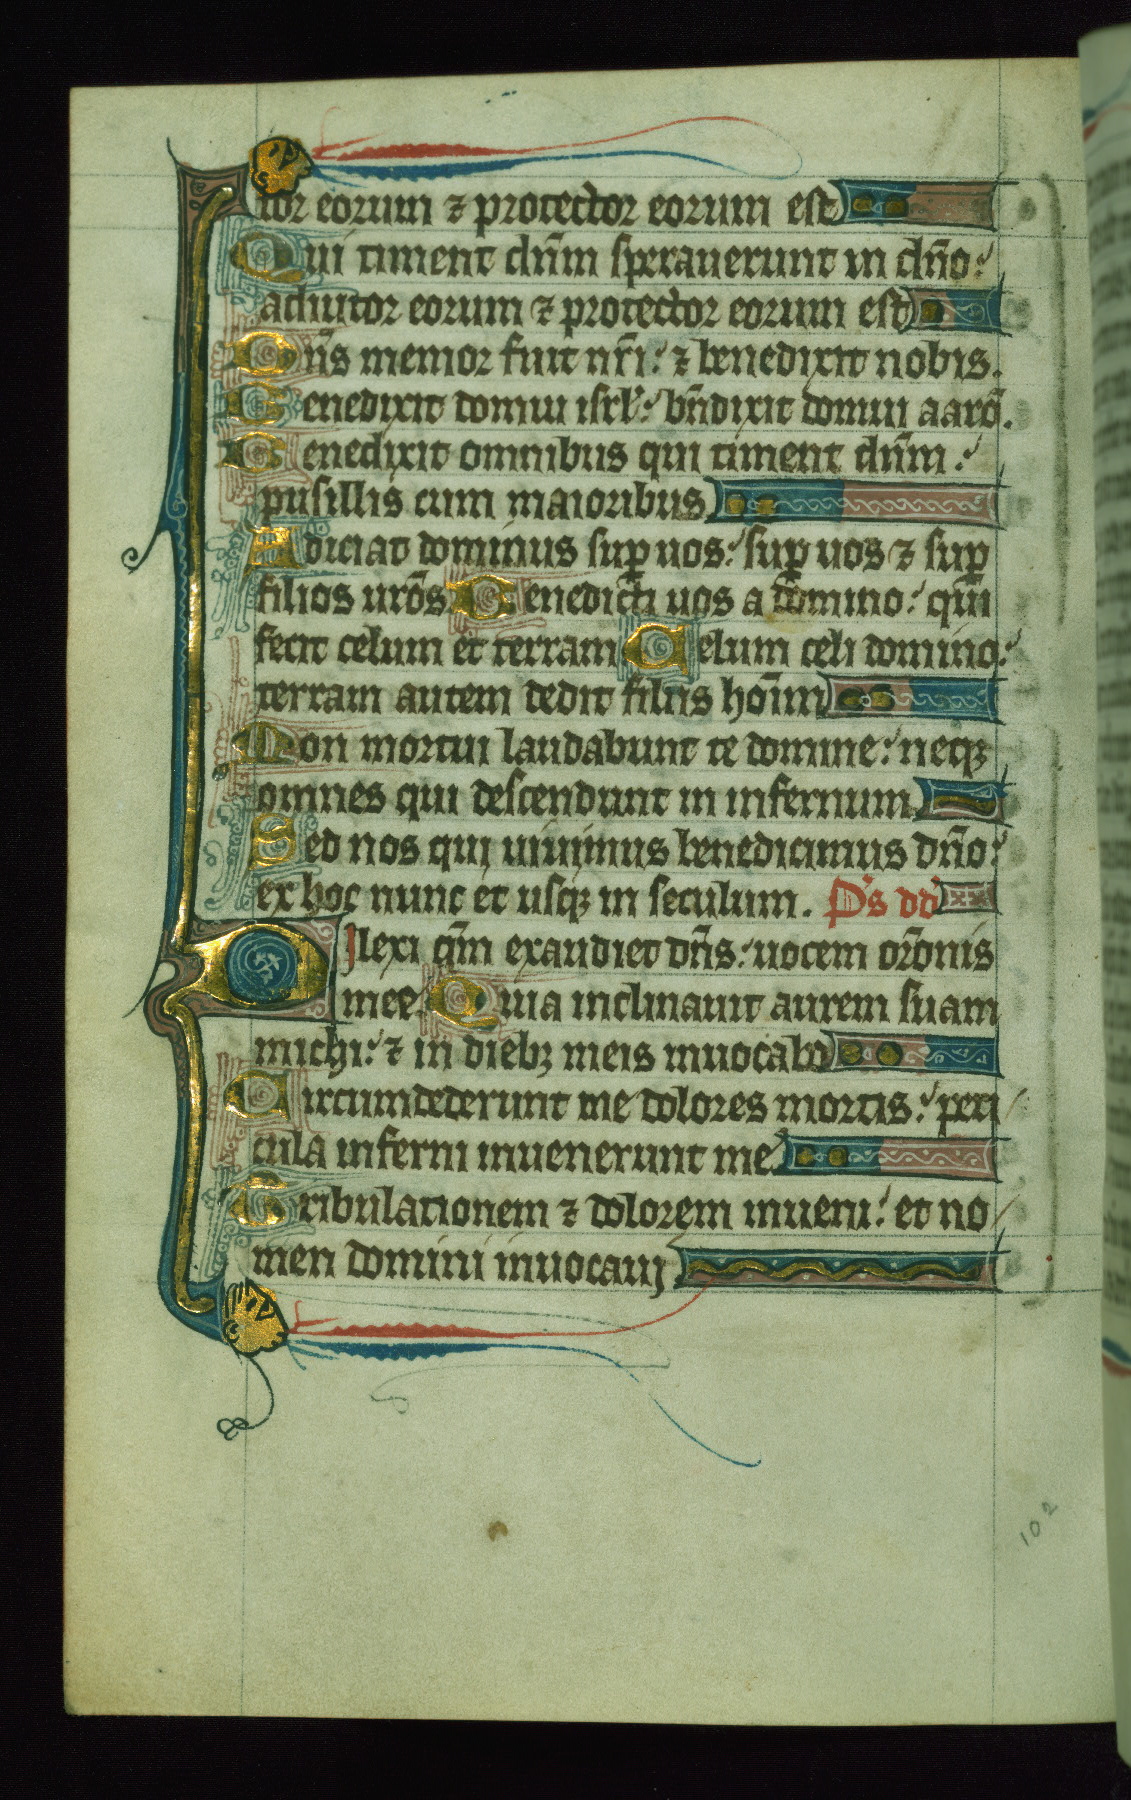 tor eorum ⁊ protector eorum est
Qui timent dn̄m sperauerunt in dn̄o:
adiutor eorum ⁊ protector eorum est
Dn̄s memor fuit nr̄i: ⁊ benedixit nobis.
Benedixit domui isrl̄: bn̄dixit domui aarō.
Benedixit omnibus qui timent dn̄m:
pusillis cum maioribus
Adiciat dominus suꝑ uos: suꝑ uos ⁊ suꝑ
filios urōs Benedicti uos a domino: qui
fecit celum et terram Celum celi domino:
terram autem dedit filiis hoīm
Non mortui laudabunt te domine: neqꝫ
omnes qui descendunt in infernum
Sed nos qui uiuimus benedicimus dn̄o:
ex hoc nunc et usqꝫ in seculum. Ps dd
Dilexi qm̄ exaudiet dn̄s: uocem orōnis
mee. Quia inclinauit aurem suam
michi: ⁊ in diebꝫ meis inuocabo
Circumdederunt me dolores mortis: peri
cula inferni inuenerunt me
Tribulationem ⁊ dolorem inueni: et no
men domini inuocaui
102